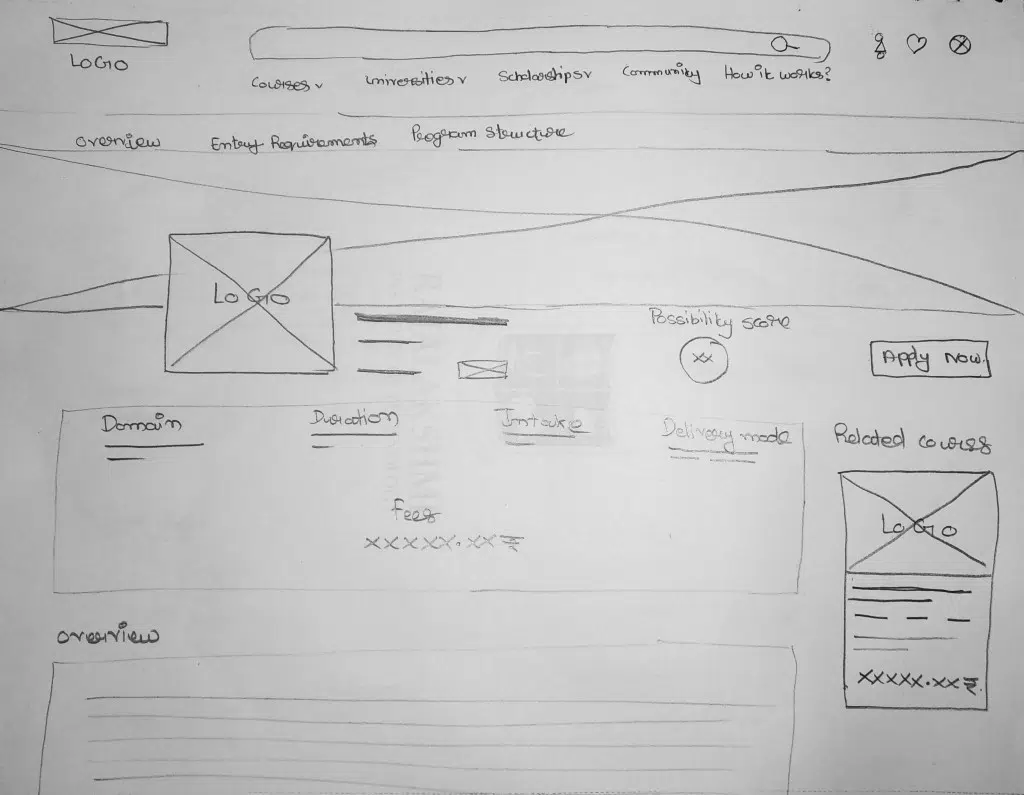 LOGO
Courses v Universities v Scholarships v Community How it works?
Overview Entry Requirements Program Structure
LOGO
Possibility score
XX
Apply Now.
Domain Duration Intake Delivery mode
Related courses
Fees
XXXXX.XX ₹
LOGO
XXXXX.XX ₹
Overview